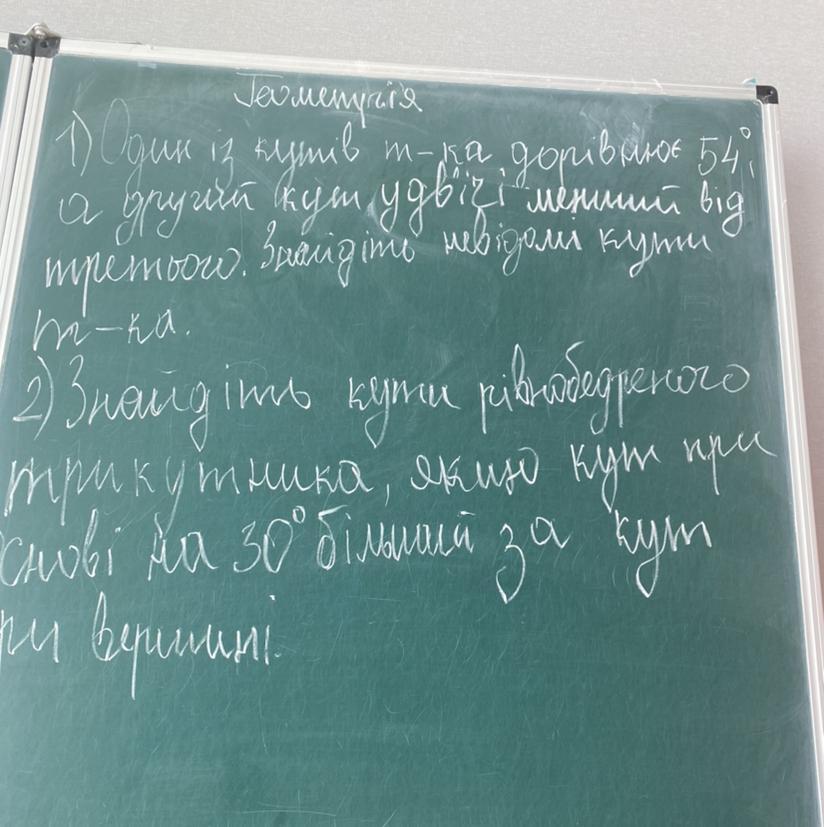 Геометрія
1) Один із кутів т-ка дорівнює 54°,
а другий кут удвічі менший від
третього. Знайдіть невідомі кути
т-ка.
2) Знайдіть кути рівнобедреного
трикутника, якщо кут при
снові на 30° більший за кут
ри вершині.